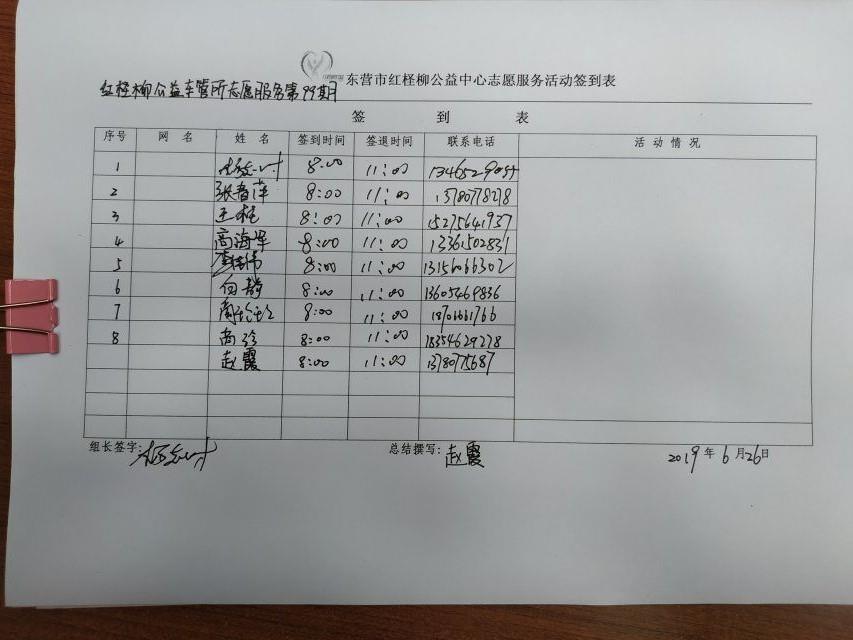 东营市红柽柳公益中心志愿服务活动签到表
红柽柳公益车管所志愿服务第99期
签 到 表
序号 网 名 姓 名 签到时间 签退时间 联系电话 活动情况
1 8:00 11:00
2 张春萍 8:00 11:00 13780778278
3 王桂 8:00 11:00 15275641937
4 高海军 8:00 11:00 13361502831
5 8:00 11:00 13156066302
6 向静 8:00 11:00 13605469836
7 8:00 11:00 18701661766
8 尚珍 8:00 11:00 18354629278
赵霞 8:00 11:00 13780775687
组长签字: 总结撰写: 赵霞 2019 年 6 月 26 日